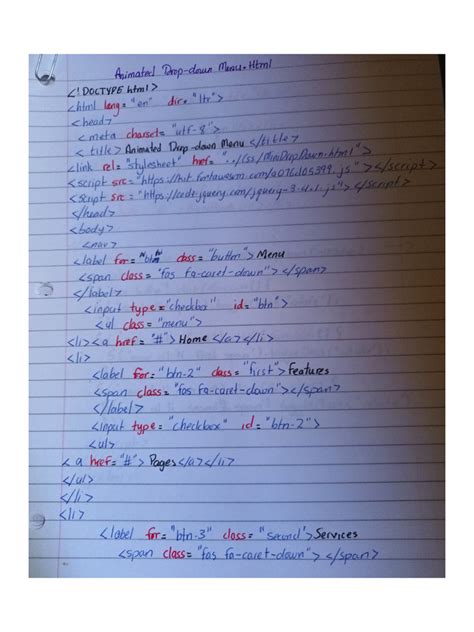 Animated Drop-down Menu.Html
<!DOCTYPE html>
<html lang="en" dir="ltr">
<head>
<meta charset="utf-8">
<title>Animated Drop-down Menu</title>
<link rel="stylesheet" href="../Css/MiniDropDown.html">
<script src="https://kit.fontawesom.com/a076d05399.js"></script>
<script src="https://code.jquery.com/jquery-3-4.1.js"></script>
</head>
<body>
<nav>
<label for="btn" class="button">Menu
<span class="fas fa-caret-down"></span>
</label>
<input type="checkbox" id="btn">
<ul class="menu">
<li><a href="#">Home</a></li>
<li>
<label for="btn-2" class="first">Features
<span class="fas fa-caret-down"></span>
</label>
<input type="checkbox" id="btn-2">
<ul>
<a href="#">Pages</a></li>
</ul>
</li>
<li>
<label for="btn-3" class="second">Services
<span class="fas fa-caret-down"></span>